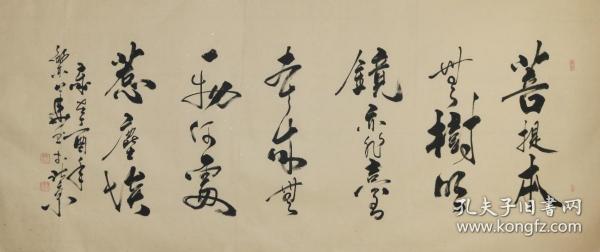 菩提本
無樹明
鏡亦非臺
本來無
一物何處
惹塵埃
孔夫子旧书网
www.kongfz.com